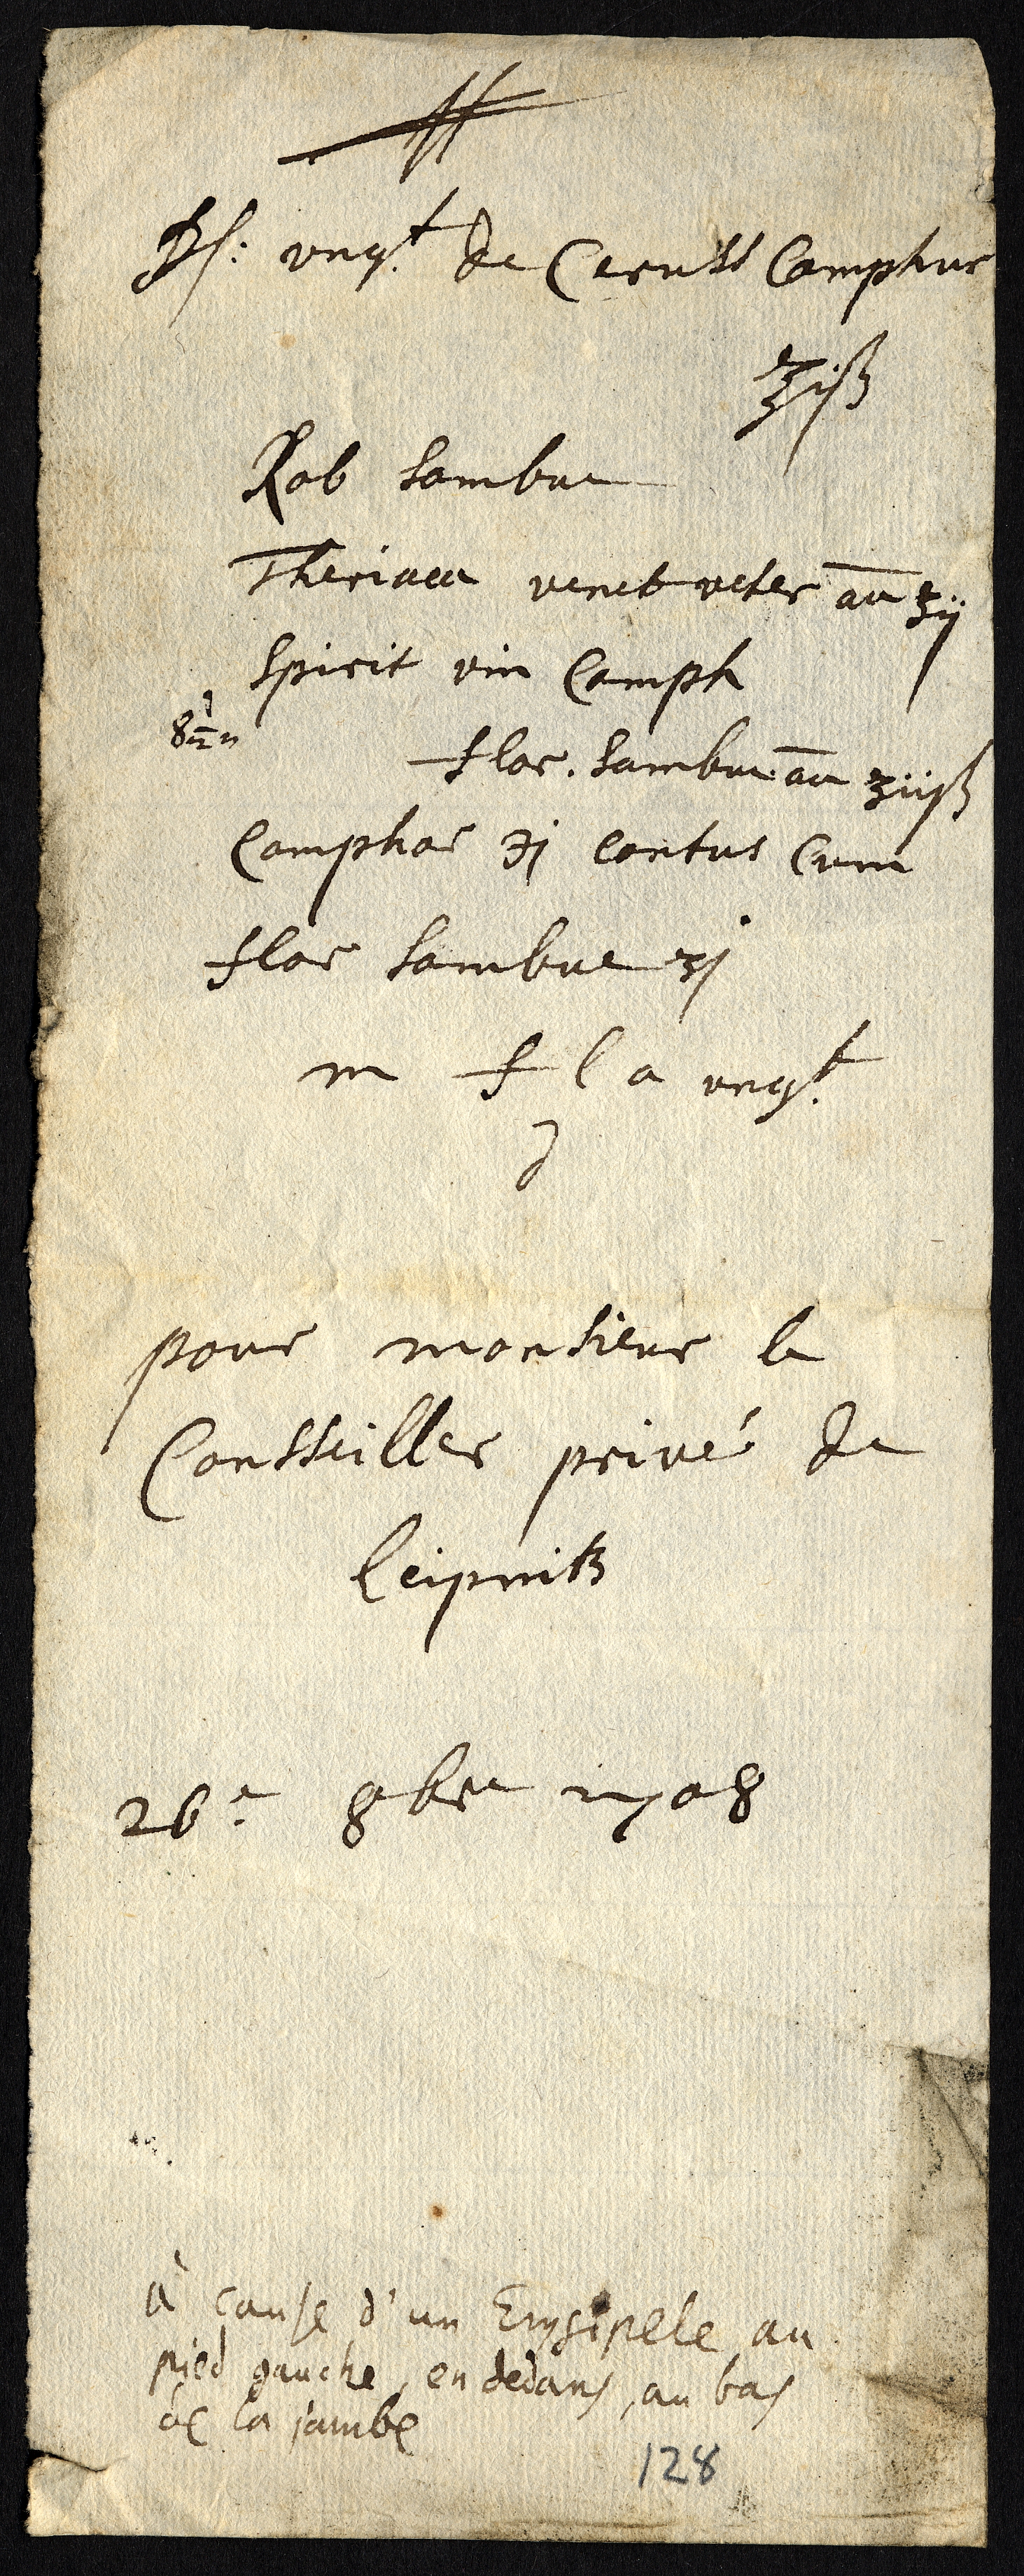 ℞: ungt de Ceruss Camphor
℥iß
Rob sambuc
Theriaca venet veter aā ʒij
spirit vin Camph
flor. sambuc aā ʒijß
Camphor ʒj contus Cum
flor sambuc ʒj
m f l a ungt
d
pour monsieur le
Consseiller privé de
leipnitz
26e 8bre 1708
à cause d'un Erysipele au
pied gauche, en dedans, au bas
de la jambe
128